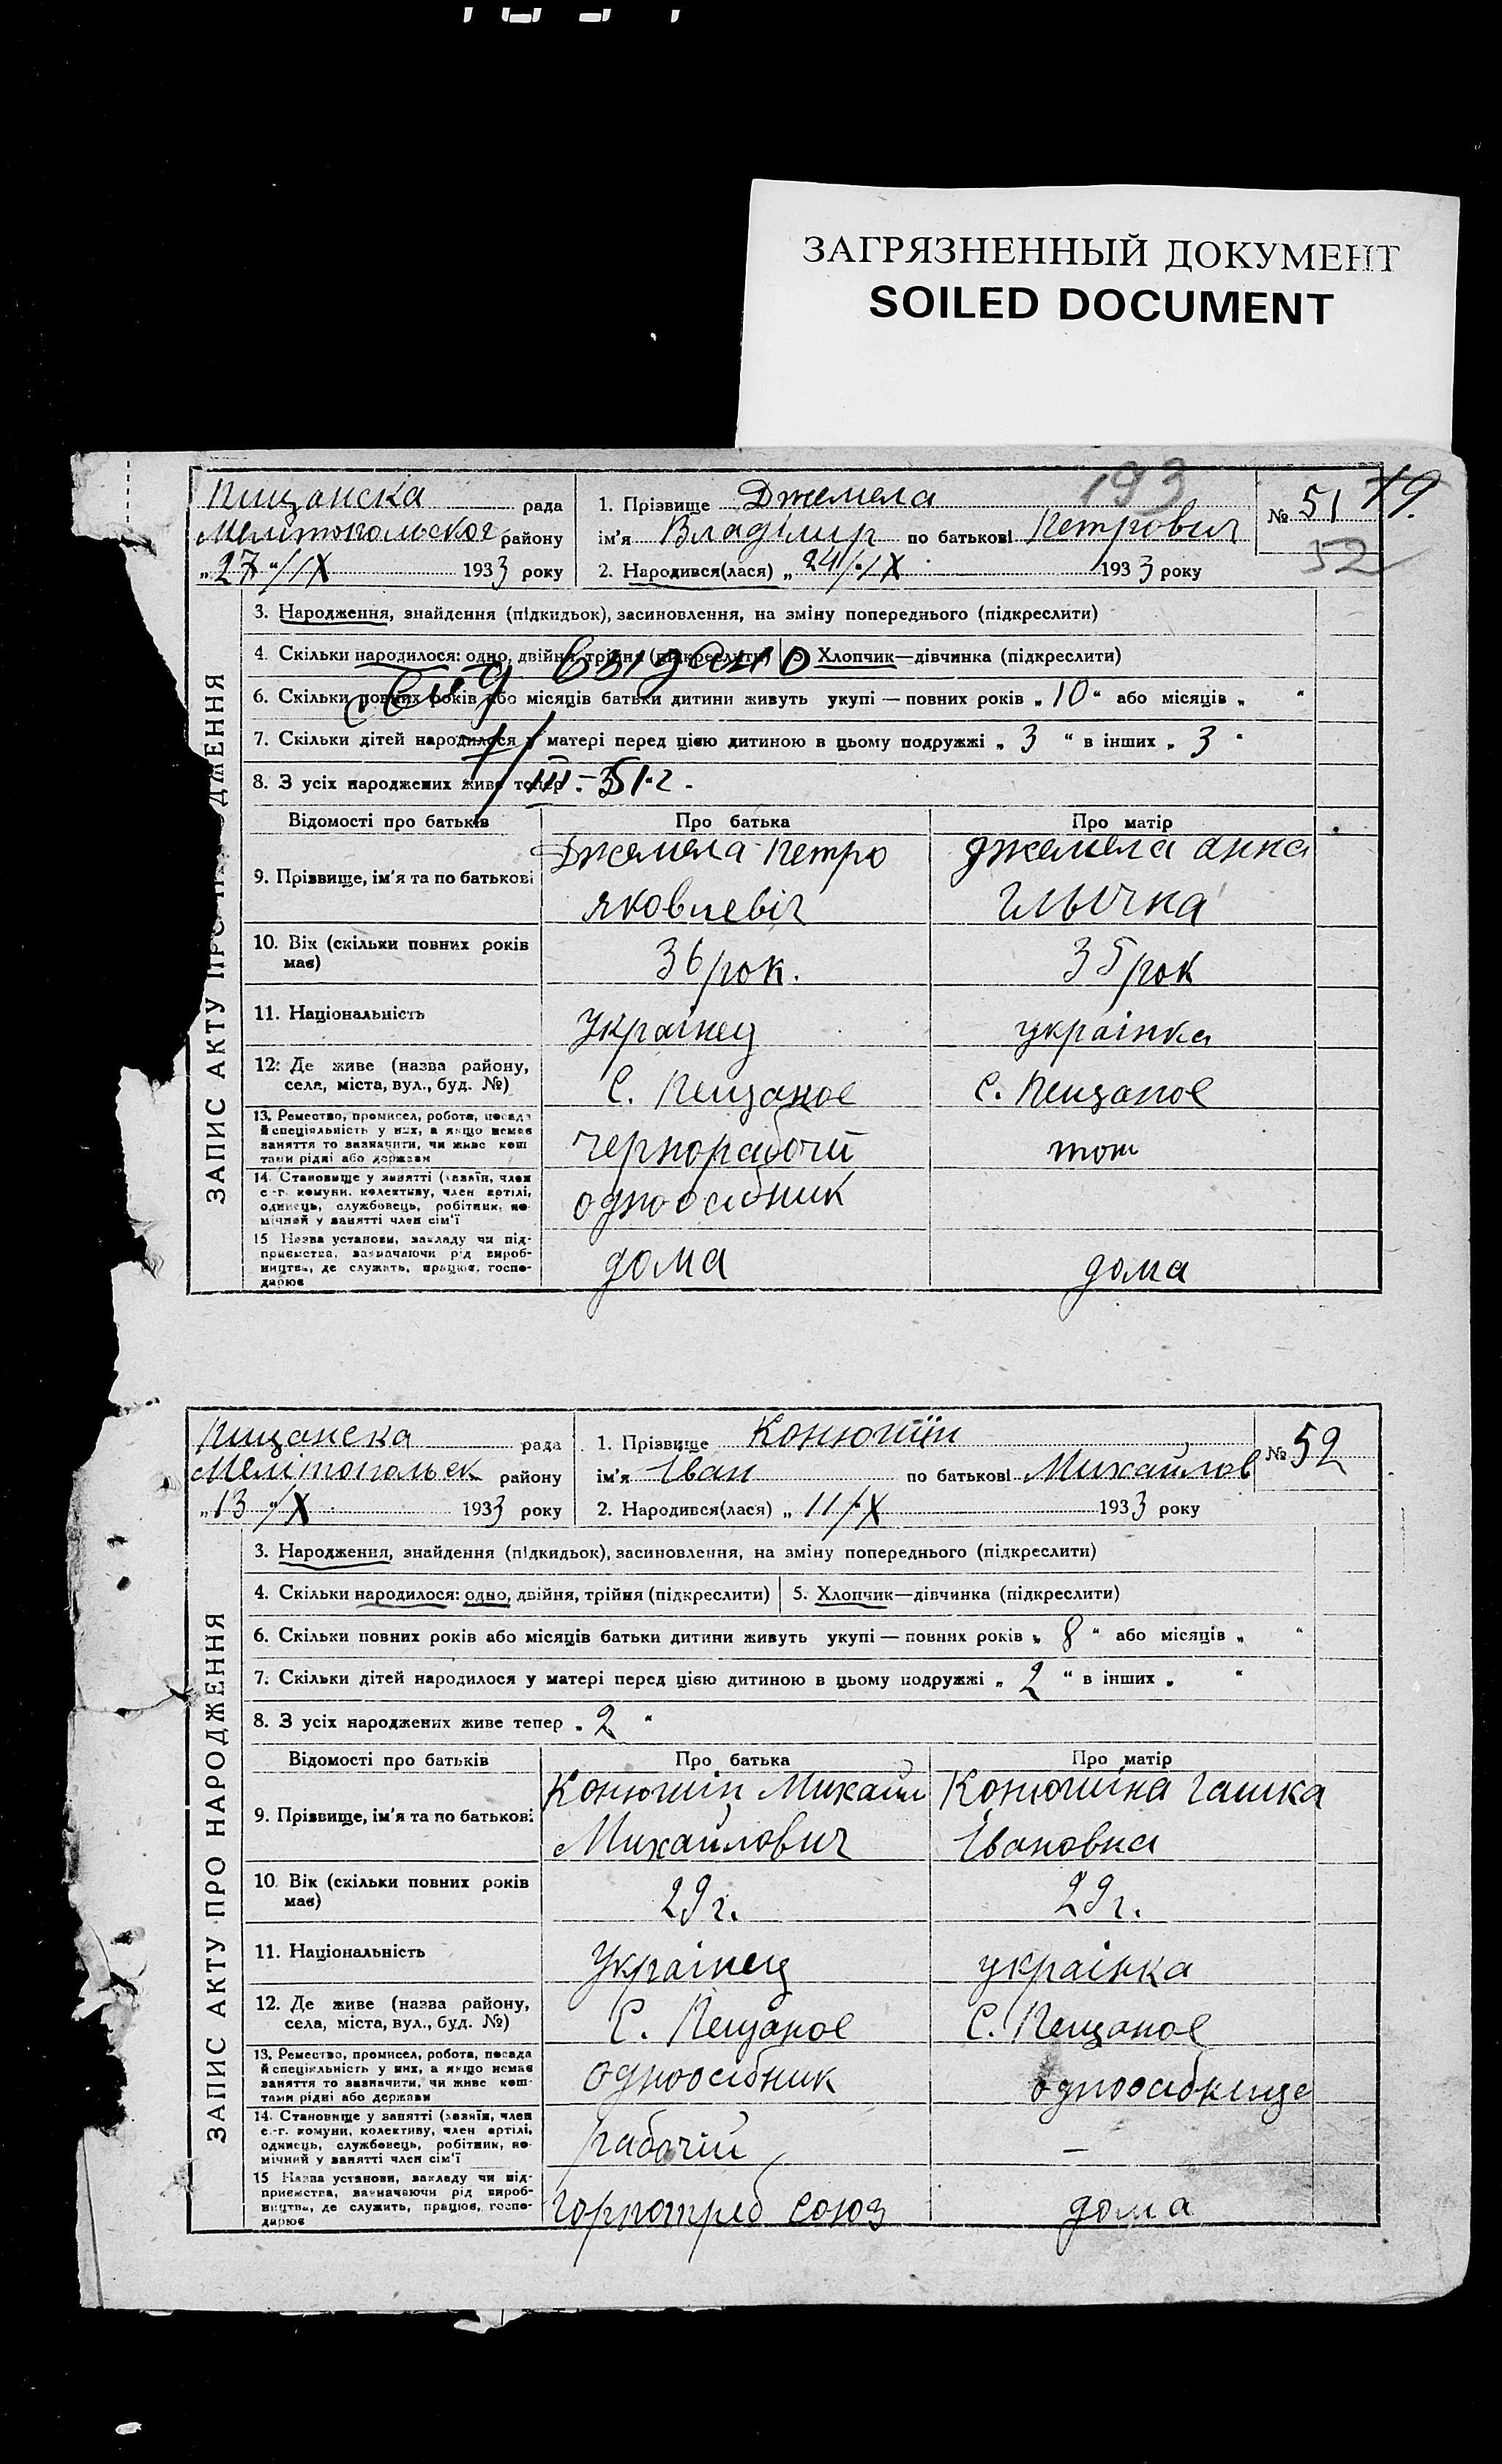 ЗАГРЯЗНЕННЫЙ ДОКУМЕНТ
SOILED DOCUMENT
193
Пищанска рада
1. Прізвище Джемела
№ 51
19.
Мелітопольског району
ім'я Владімир по батькові Петрович
52
„27"/IX 1933 року
2. Народився(лася) „24"/IX 1933 року
ЗАПИС АКТУ ПРО НАРОДЖЕННЯ
3. Народження, знайдення (підкидьок), засиновлення, на зміну попереднього (підкреслити)
4. Скільки народилося: одно, двійня, трійня (підкреслити) 5. Хлопчик—дівчинка (підкреслити)
выдано
6. Скільки повних років або місяців батьки дитини живуть укупі — повних років „10" або місяців „ "
7. Скільки дітей народилося у матері перед цією дитиною в цьому подружжі „3" в інших „3"
8. З усіх народжених живе тепер
III-51.г.
Відомості про батьків
Про батька
Про матір
9. Прізвище, ім'я та по батькові
Джемела Петро
Яковлевіч
Джемела Анна
10. Вік (скільки повних років має)
36 рок.
35 рок
11. Національність
Українец
українка
12. Де живе (назва району, села, міста, вул., буд. №)
С. Пещаное
С. Пещаное
13. Ремество, промисел, робота, посада й спеціяльність у них, а якщо немає заняття то зазначити, чи живе коштами рідні або держави
чернорабочій
тош
14. Становище у занятті (хазяїн, член с.-г. комуни, колективу, член артілі, одинець, службовець, робітник, помічний у занятті член сім'ї
одноосібник
15 Назва установи, закладу чи підприємства, зазначаючи рід виробництва, де служить, працює, господарює
дома
дома
Пищанска рада
1. Прізвище Конюшін
№ 52
Мелітопольск району
ім'я Іван по батькові Михайлов
„13"/X 1933 року
2. Народився(лася) „11"/X 1933 року
ЗАПИС АКТУ ПРО НАРОДЖЕННЯ
3. Народження, знайдення (підкидьок), засиновлення, на зміну попереднього (підкреслити)
4. Скільки народилося: одно, двійня, трійня (підкреслити) 5. Хлопчик—дівчинка (підкреслити)
6. Скільки повних років або місяців батьки дитини живуть укупі — повних років „8" або місяців „ "
7. Скільки дітей народилося у матері перед цією дитиною в цьому подружжі „2" в інших „ "
8. З усіх народжених живе тепер „2"
Відомості про батьків
Про батька
Про матір
9. Прізвище, ім'я та по батькові
Конюшін Михаил
Михайлович
Конюшіна Гашка
Івановна
10. Вік (скільки повних років має)
29 г.
29 г.
11. Національність
Українец
українка
12. Де живе (назва району, села, міста, вул., буд. №)
С. Пещаное
С. Пещаное
13. Ремество, промисел, робота, посада й спеціяльність у них, а якщо немає заняття то зазначити, чи живе коштами рідні або держави
одноосібник
14. Становище у занятті (хазяїн, член с.-г. комуни, колективу, член артілі, одинець, службовець, робітник, помічний у занятті член сім'ї
рабочій
—
15 Назва установи, закладу чи підприємства, зазначаючи рід виробництва, де служить, працює, господарює
Горпотреб союз
дома